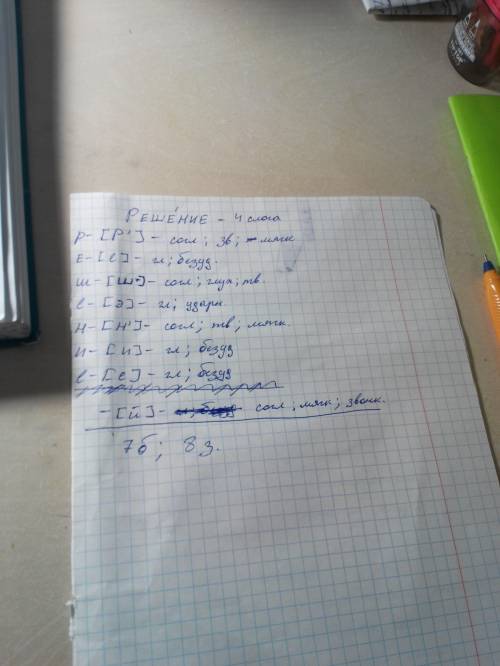 РЕШЕ́НИЕ - 4 слога
Р- [Р'] - согл; зв; мягк
Е- [Е] - гл; безуд.
Ш- [Ш] - согл; глух, тв.
Е- [Э] - гл; ударн.
Н- [Н'] - согл; тв; мягк.
И- [И] - гл; безуд
Е- [Е] - гл; безуд
- [Й] - согл, мягк; звонк.
7б; 8з.